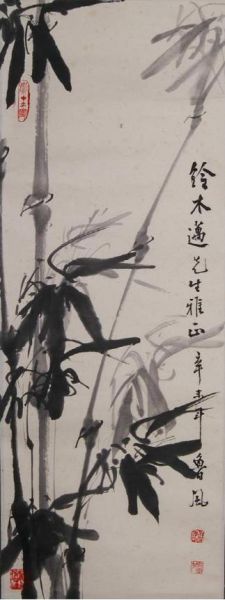 鈴木邁先生雅正
辛未年 魯風